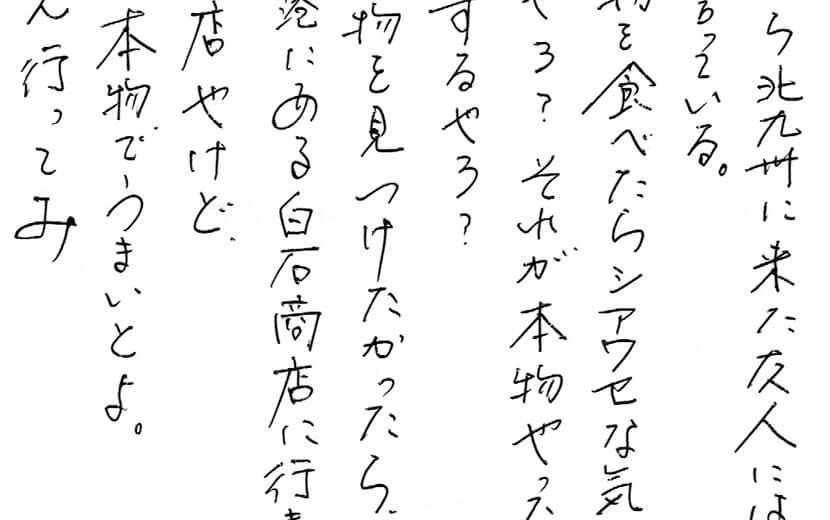 ら北九州に来た友人には
っている。
物を食べたらシアワセな気
やろ？それが本物やった
するやろ？
物を見つけたかったら、
港にある白石商店に行
店やけど、
本物で、うまいとよ。
ん行ってみ